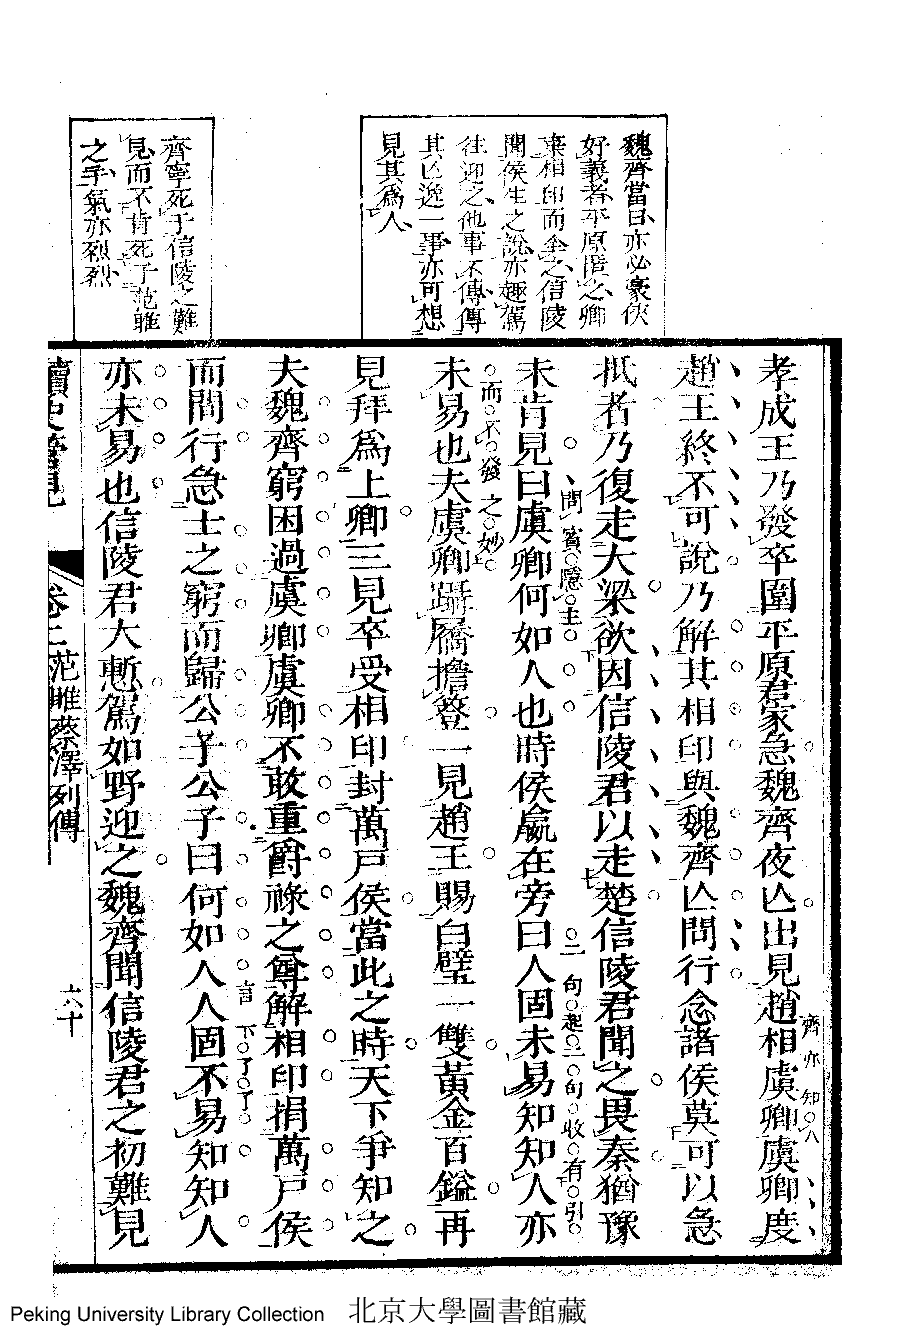 魏齊當日亦必豪俠
好義者平原匿之卿
棄相印而全之信陵
聞侯生之說亦趣駕
往迎之他事不傳傳
其亾逸一事亦可想
見其爲人
齊寧死于信陵之難
見而不肯死于范雎
之手氣亦烈烈
孝成王乃發卒圍平原君家急魏齊夜亾出見趙相虞卿虞卿度
齊亦知人
趙王終不可說乃解其相印與魏齊亾間行念諸侯莫可以急
抵者乃復走大梁欲因信陵君以走楚信陵君聞之畏秦猶豫
問賓隱主
二句起二句收有引
未肯見曰虞卿何如人也時侯嬴在旁曰人固未易知知人亦
而不發之妙
未易也夫虞卿躡屩擔簦一見趙王賜白璧一雙黃金百鎰再
見拜爲上卿三見卒受相印封萬戶侯當此之時天下爭知之
夫魏齊窮困過虞卿虞卿不敢重爵祿之尊解相印捐萬戶侯
言下了了
而間行急士之窮而歸公子公子曰何如人人固不易知知人
亦未易也信陵君大慙駕如野迎之魏齊聞信陵君之初難見
讀史管見 卷二 范雎蔡澤列傳 六十
Peking University Library Collection 北京大學圖書館藏